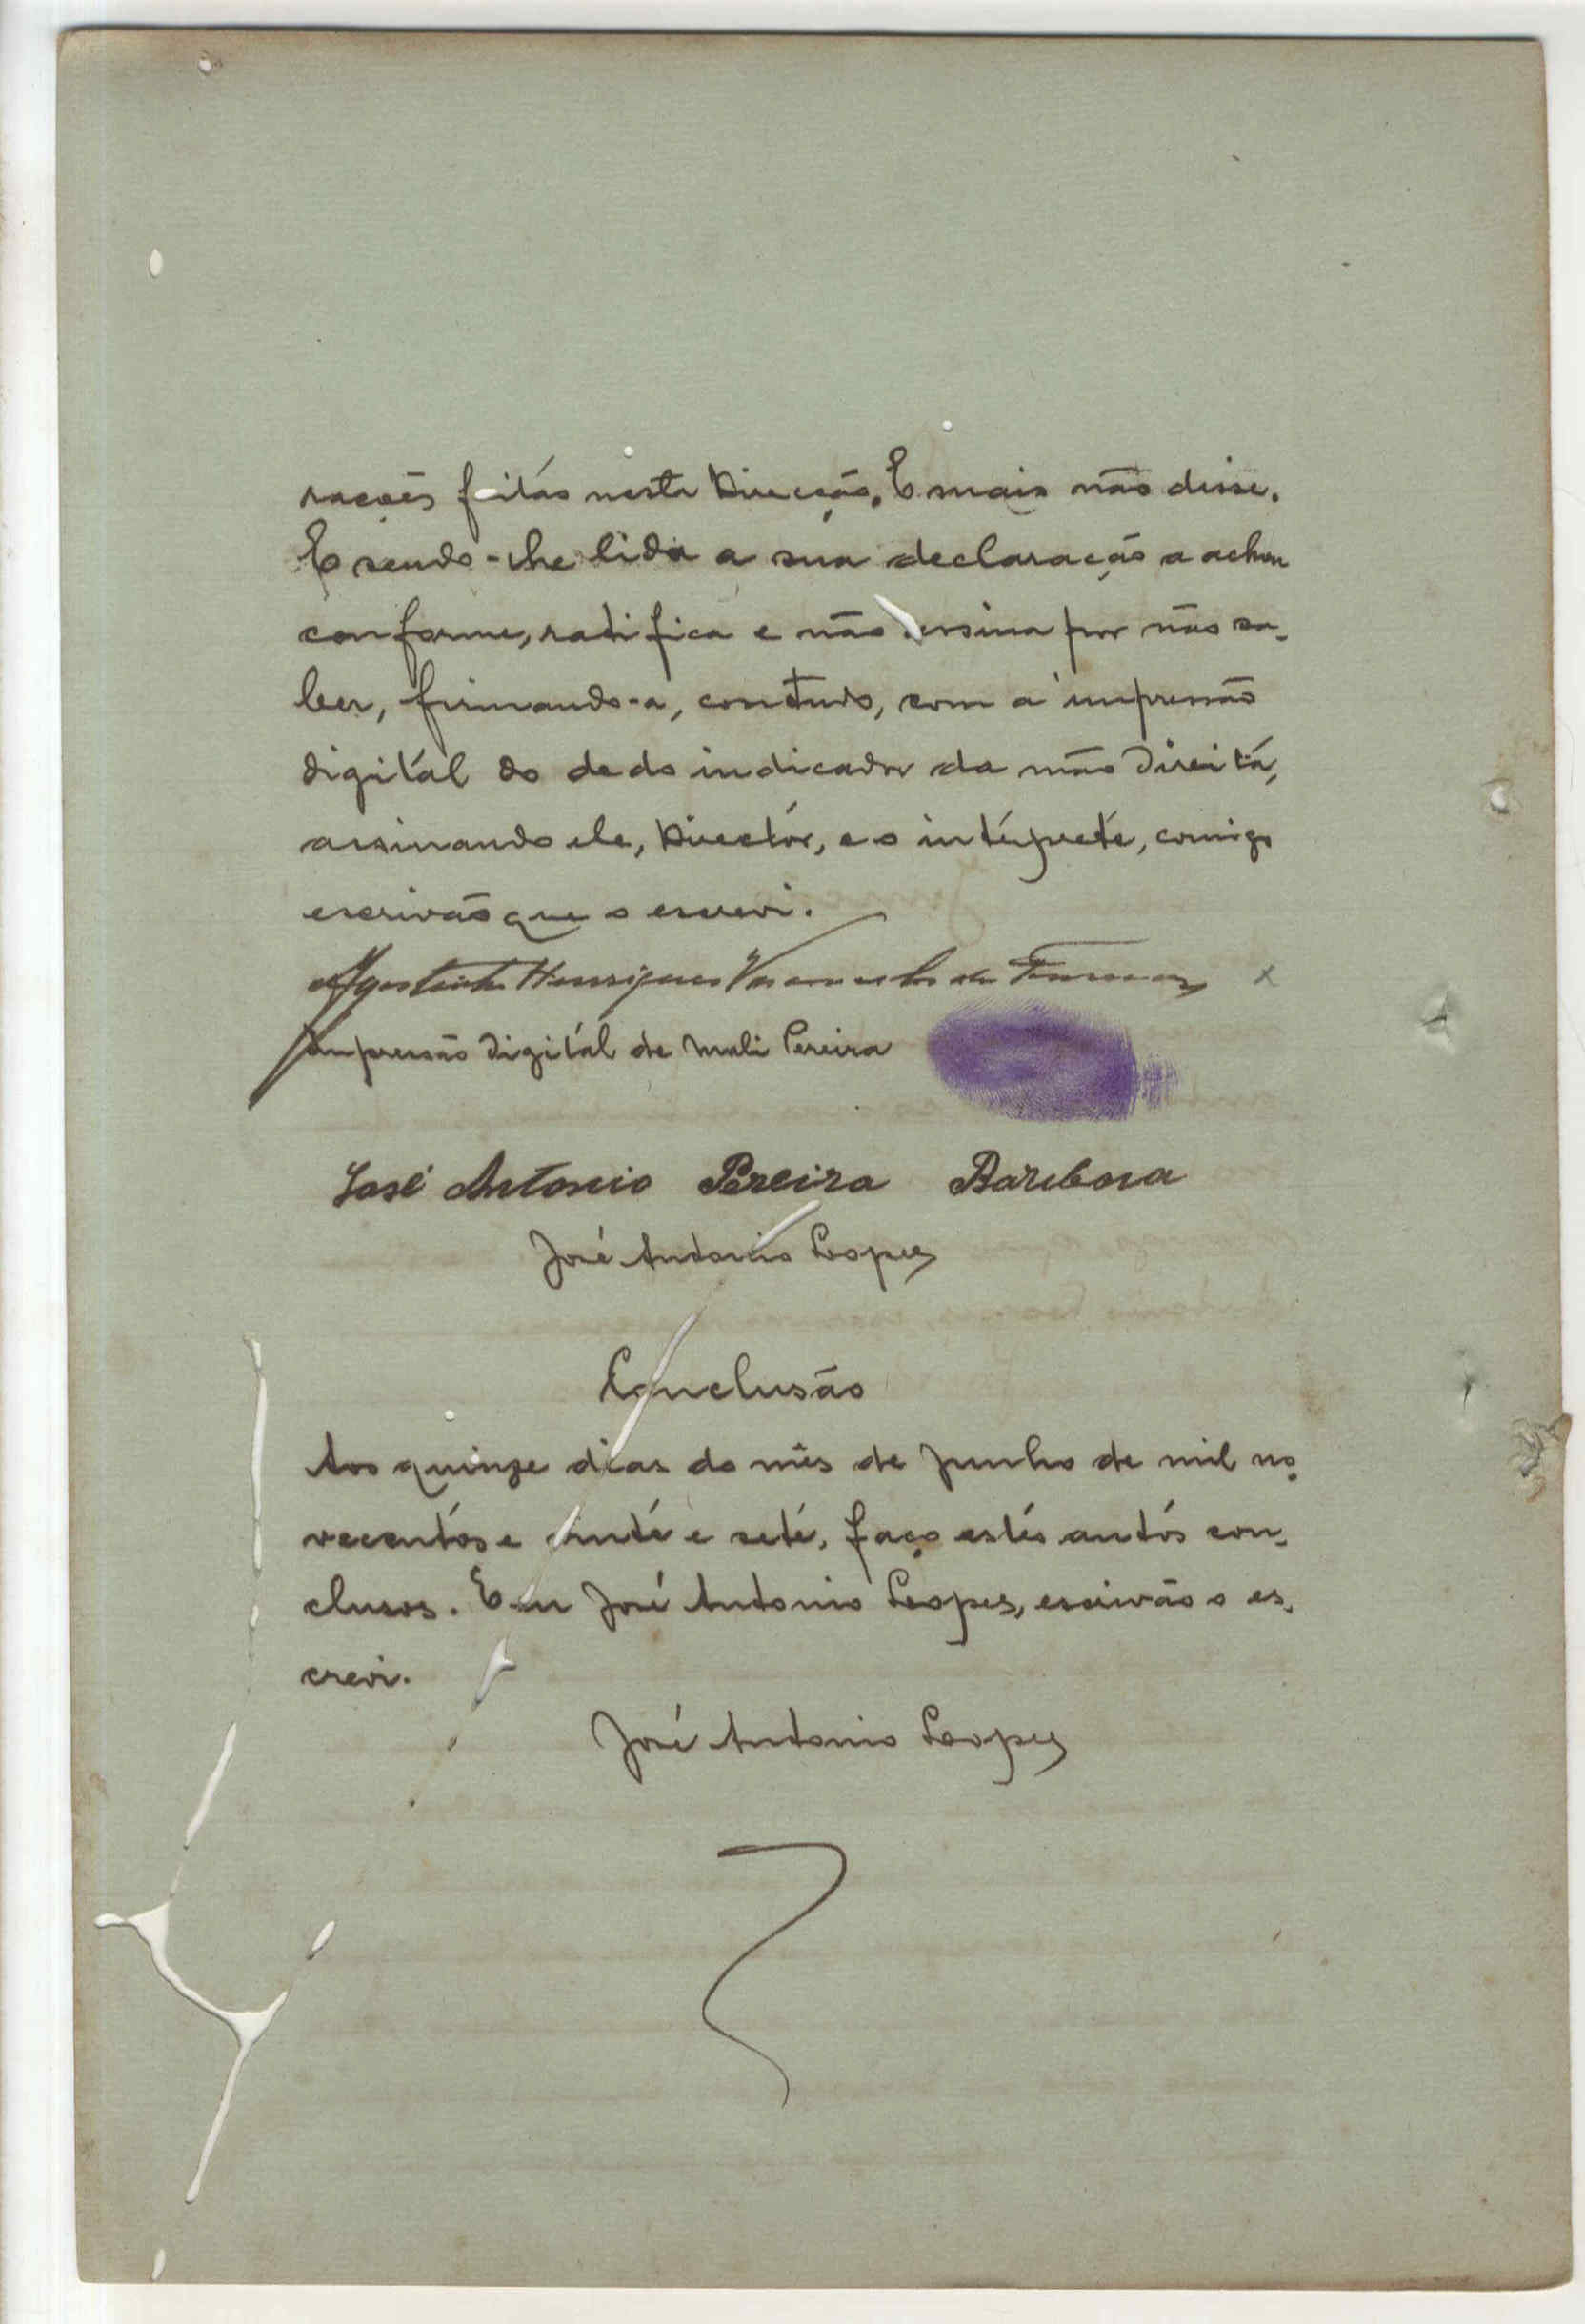 rações feitás nesta Direcção. E mais não disse.
E sendo-lhe lida a sua declaração a achou
conforme, ratifica e não assina por não sa-
ber, firmando-a, contudo, com a impressão
digitál do dedo indicador da mão direitá,
assinando ele, Directór, e o intérpreté, comigo
escrivão que o escrevi.
Agostinho Henriques Vasconcelos da
Impressão digitál de Mali Pereira
José Antonio Pereira Barbosa
José Antonio Lopes
Conclusão
Aos quinze dias do mês de Junho de mil no-
vecentós e vinté e seté, faço estés autós con-
clusos. E eu José Antonio Lopes, escrivão o es-
crevi.
José Antonio Lopes